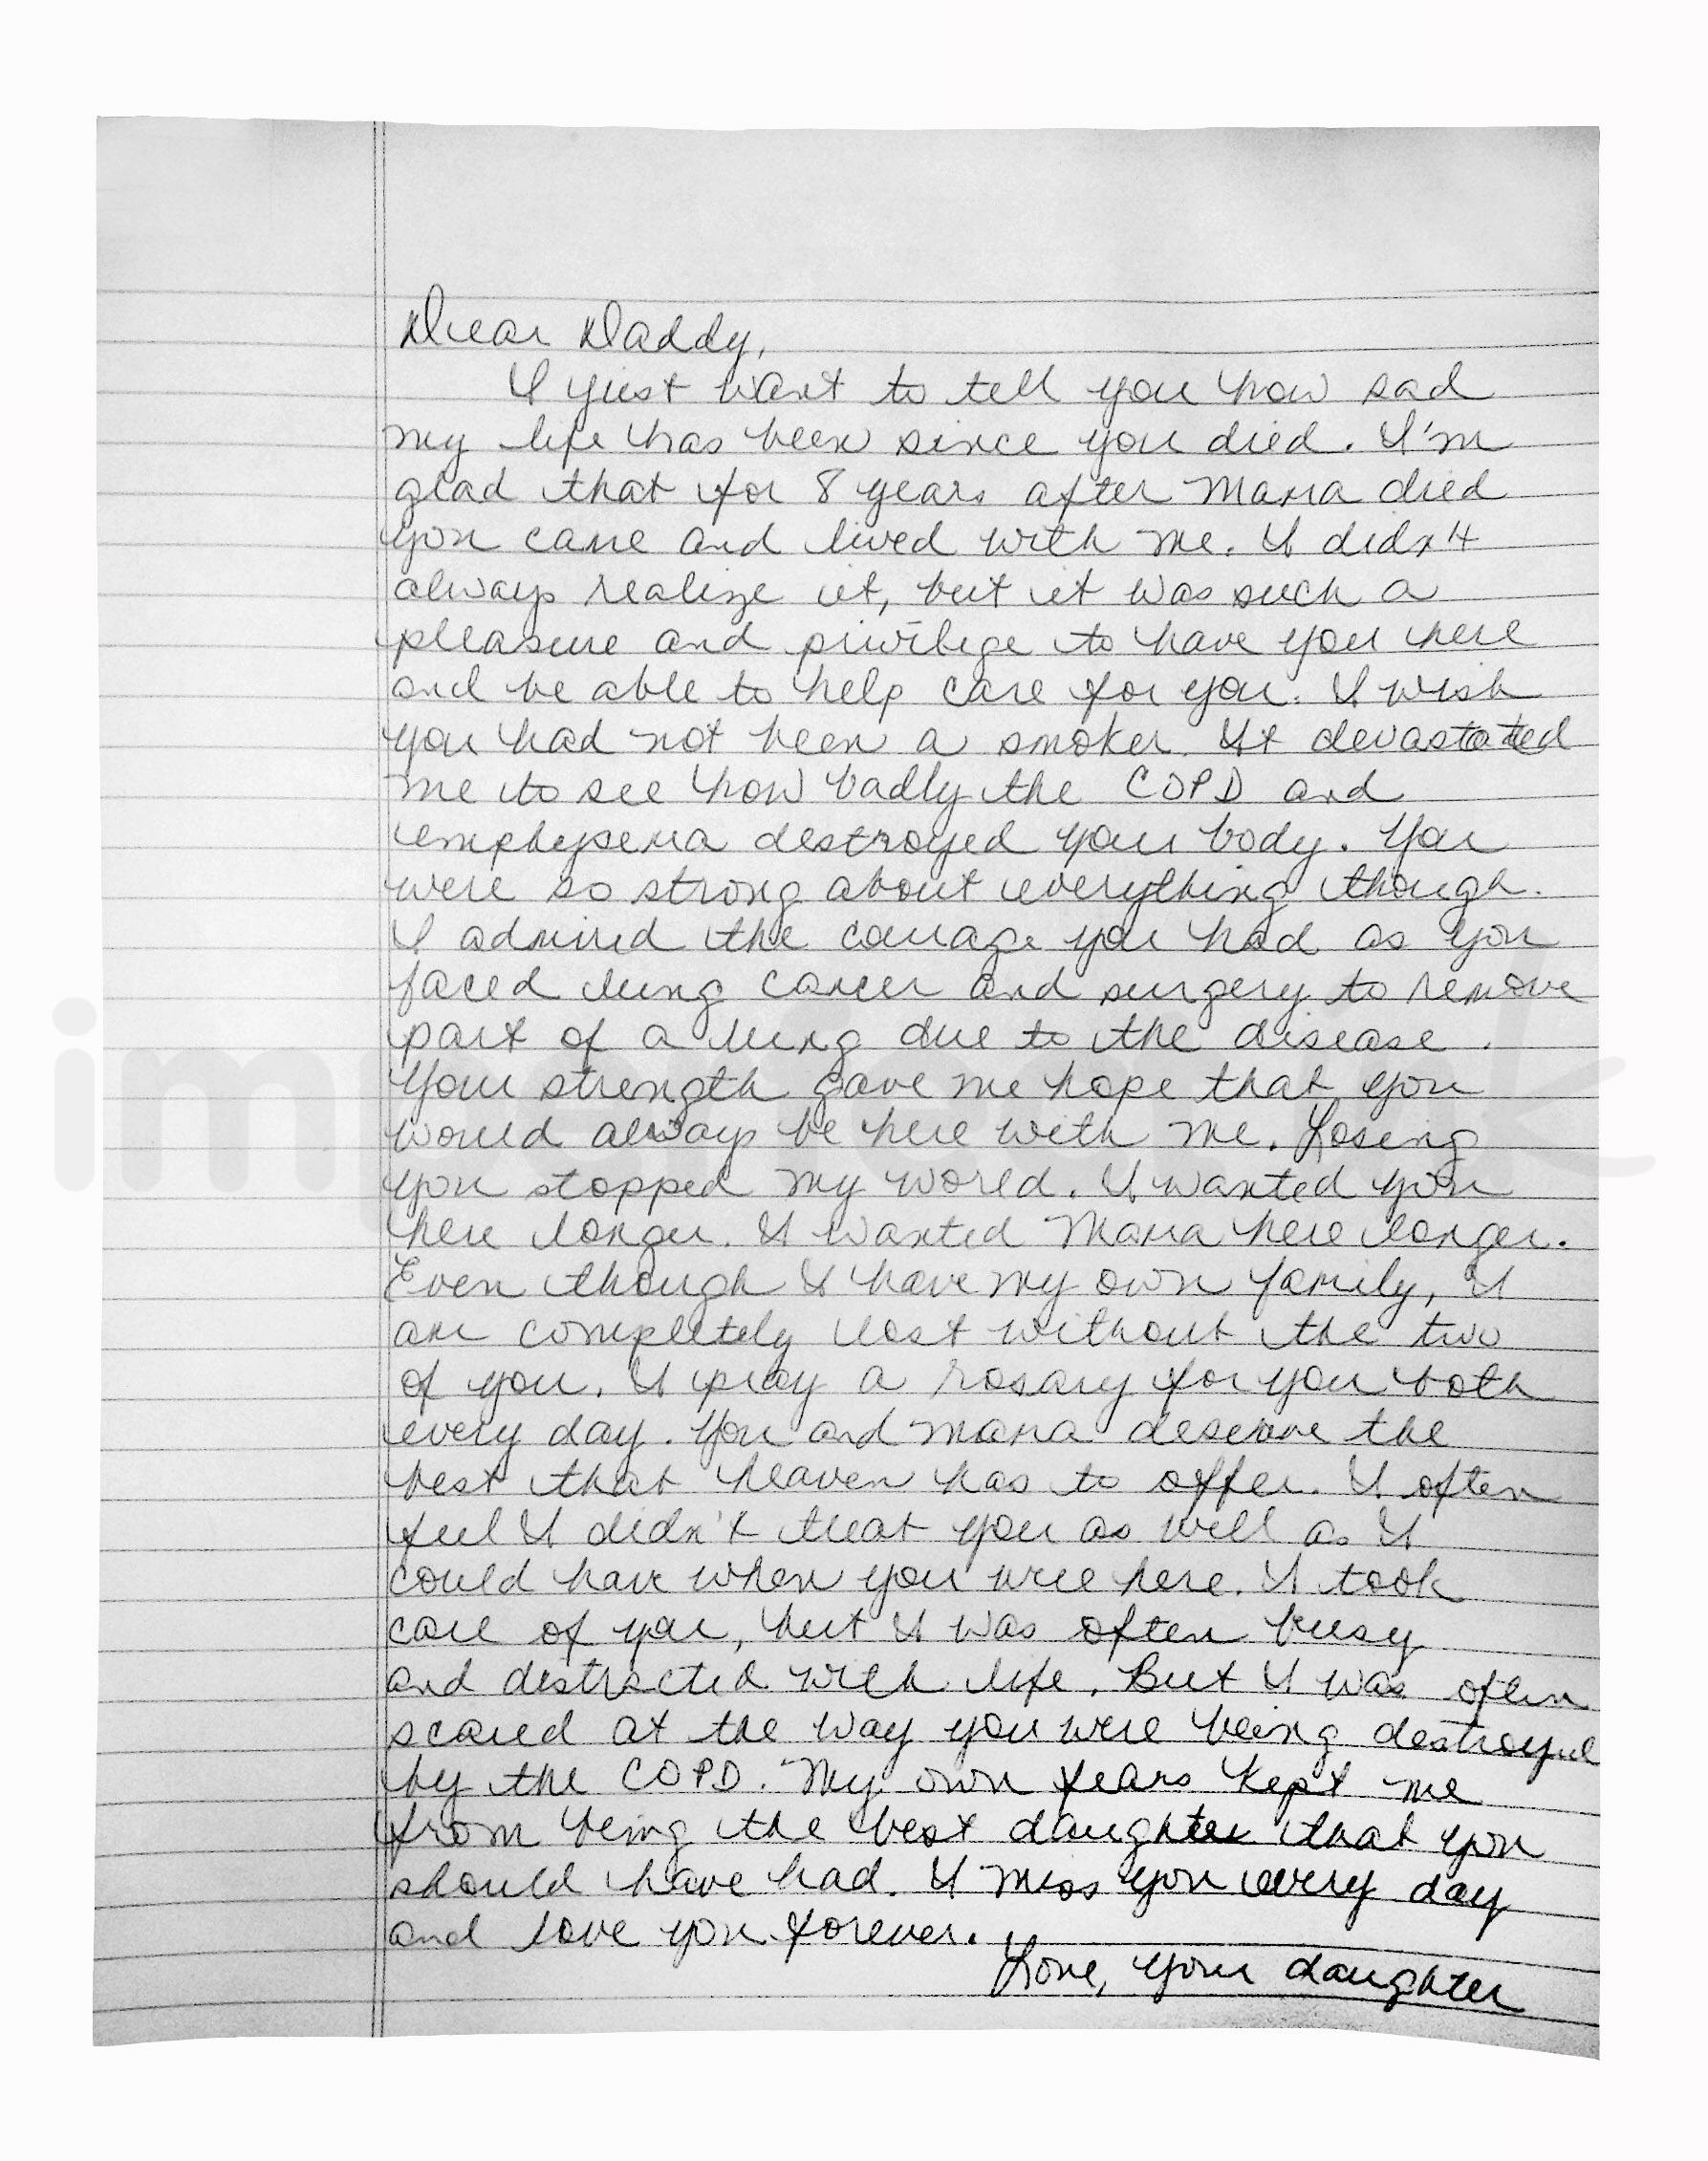 Dear Daddy,
I just want to tell you how sad
my life has been since you died. I'm
glad that for 8 years after Mama died
you came and lived with me. I didn't
always realize it, but it was such a
pleasure and privilege to have you here
and be able to help care for you. I wish
you had not been a smoker. It devastated
me to see how badly the COPD and
emphysema destroyed your body. You
were so strong about everything though.
I admired the courage you had as you
faced lung cancer and surgery to remove
part of a lung due to the disease.
Your strength gave me hope that you
would always be here with me. Losing
you stopped my world. I wanted you
here longer. I wanted Mama here longer.
Even though I have my own family, I
am completely lost without the two
of you. I pray a rosary for you both
every day. You and Mama deserve the
best that heaven has to offer. I often
feel I didn't treat you as well as I
could have when you were here. I took
care of you, but I was often busy
and distracted with life. But I was often
scared at the way you were being destroyed
by the COPD. My own fears kept me
from being the best daughter that you
should have had. I miss you every day
and love you forever.
Love, your daughter